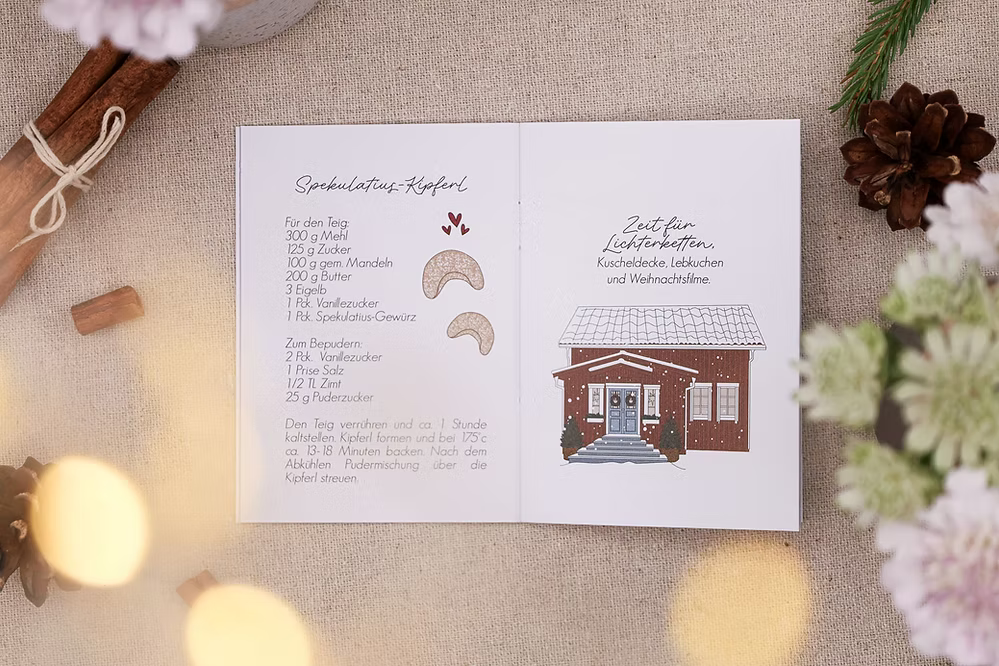 Spekulatius-Kipferl
Für den Teig:
300 g Mehl
125 g Zucker
100 g gem. Mandeln
200 g Butter
3 Eigelb
1 Pck. Vanillezucker
1 Pck. Spekulatius-Gewürz
Zum Bepudern:
2 Pck. Vanillezucker
1 Prise Salz
1/2 TL Zimt
25 g Puderzucker
Den Teig verrühren und ca. 1 Stunde
kaltstellen. Kipferl formen und bei 175°c
ca. 13-18 Minuten backen. Nach dem
Abkühlen Pudermischung über die
Kipferl streuen.
Zeit für
Lichterketten,
Kuscheldecke, Lebkuchen
und Weihnachtsfilme.